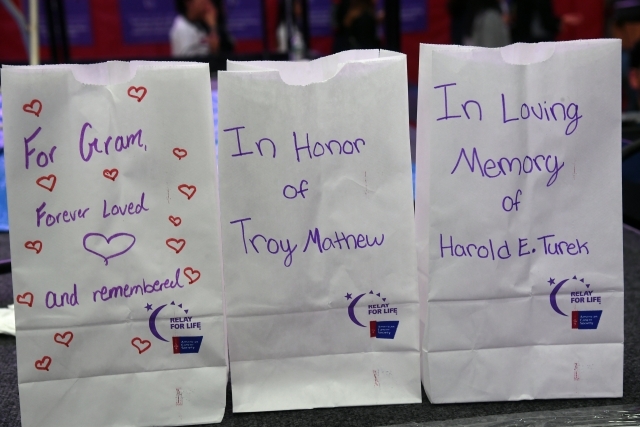 For Gram,
Forever Loved
and remembered
RELAY
FOR LIFE
American
Cancer
Society
In Honor
of
Troy Mathew
RELAY
FOR LIFE
American
Cancer
Society
In Loving
Memory
of
Harold E. Turek
RELAY
FOR LIFE
American
Cancer
Society